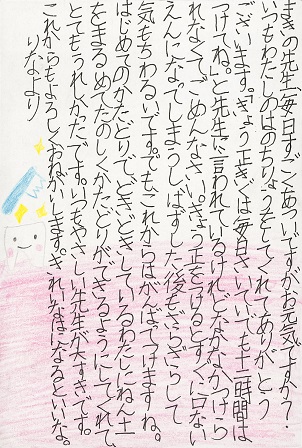 まきの先生、毎日すごくあついですがお元気ですか？
いつもわたしのはのちりょうをしてくれてありがとう
ございます。きょう正きぐは毎日さいていでも十二時間は
つけてね。」と先生に言われているけれどなかなかつけら
れなくてごめんなさい。きょう正をつけるとすぐに口ない
えんになってしまうしはずした後もざらざらして
気もちわるいです。でもこれからはがんばってつけますね。
はじめてのかたどりで、どきどきしているわたしにねん土
をまるめてたのしくかたどりができるようにしてくれて
とてもうれしかったです。いつもやさしい先生が大すきです。
これからもよろしくおねがいします。きれいなはになるといいな。
りなより